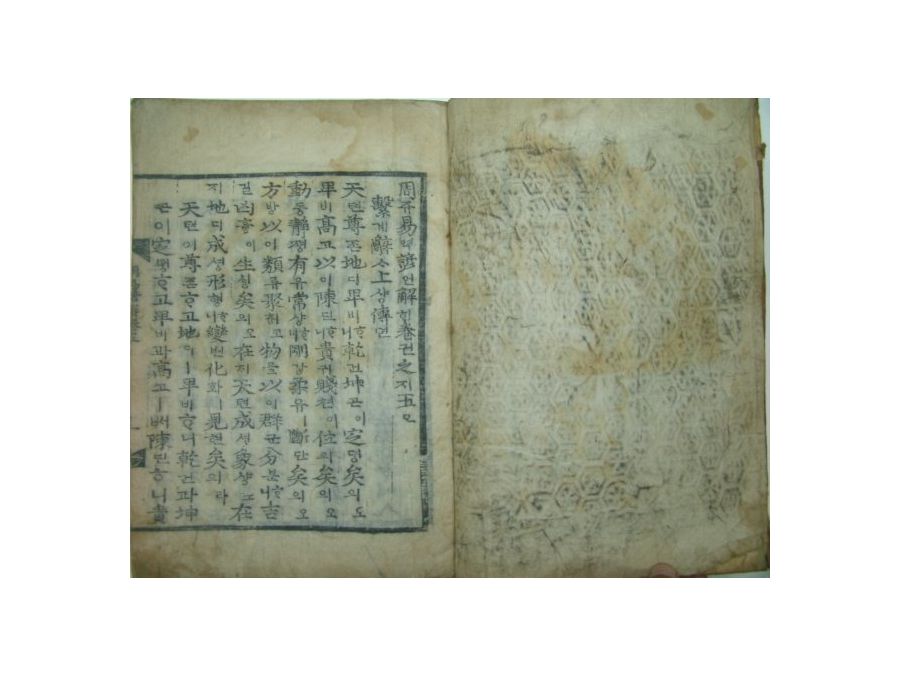 周쥬易역諺언解ᄒᆡ卷권之지五오
繫계辭ᄉᆞ上샹傳뎐
天텬尊존地디卑비ᄒᆞ니乾건坤곤이定뎡矣의오
卑비高고以이陳딘ᄒᆞ니貴귀賤쳔이位위矣의오
動동靜졍有유常샹ᄒᆞ니剛강柔유ㅣ斷단矣의오
方방以이類류聚취코物믈以이群군分분ᄒᆞ니吉
길凶흉이生ᄉᆡᆼ矣의오在ᄌᆡ天텬成셩象샹코在
ᄌᆡ地디成셩形형ᄒᆞ니變변化화ㅣ見현矣의라
天텬이尊존ᄒᆞ고地디ㅣ卑비ᄒᆞ니乾건과坤
곤이定뎡ᄒᆞ고卑비과高고ㅣ陳딘ᄒᆞ니貴